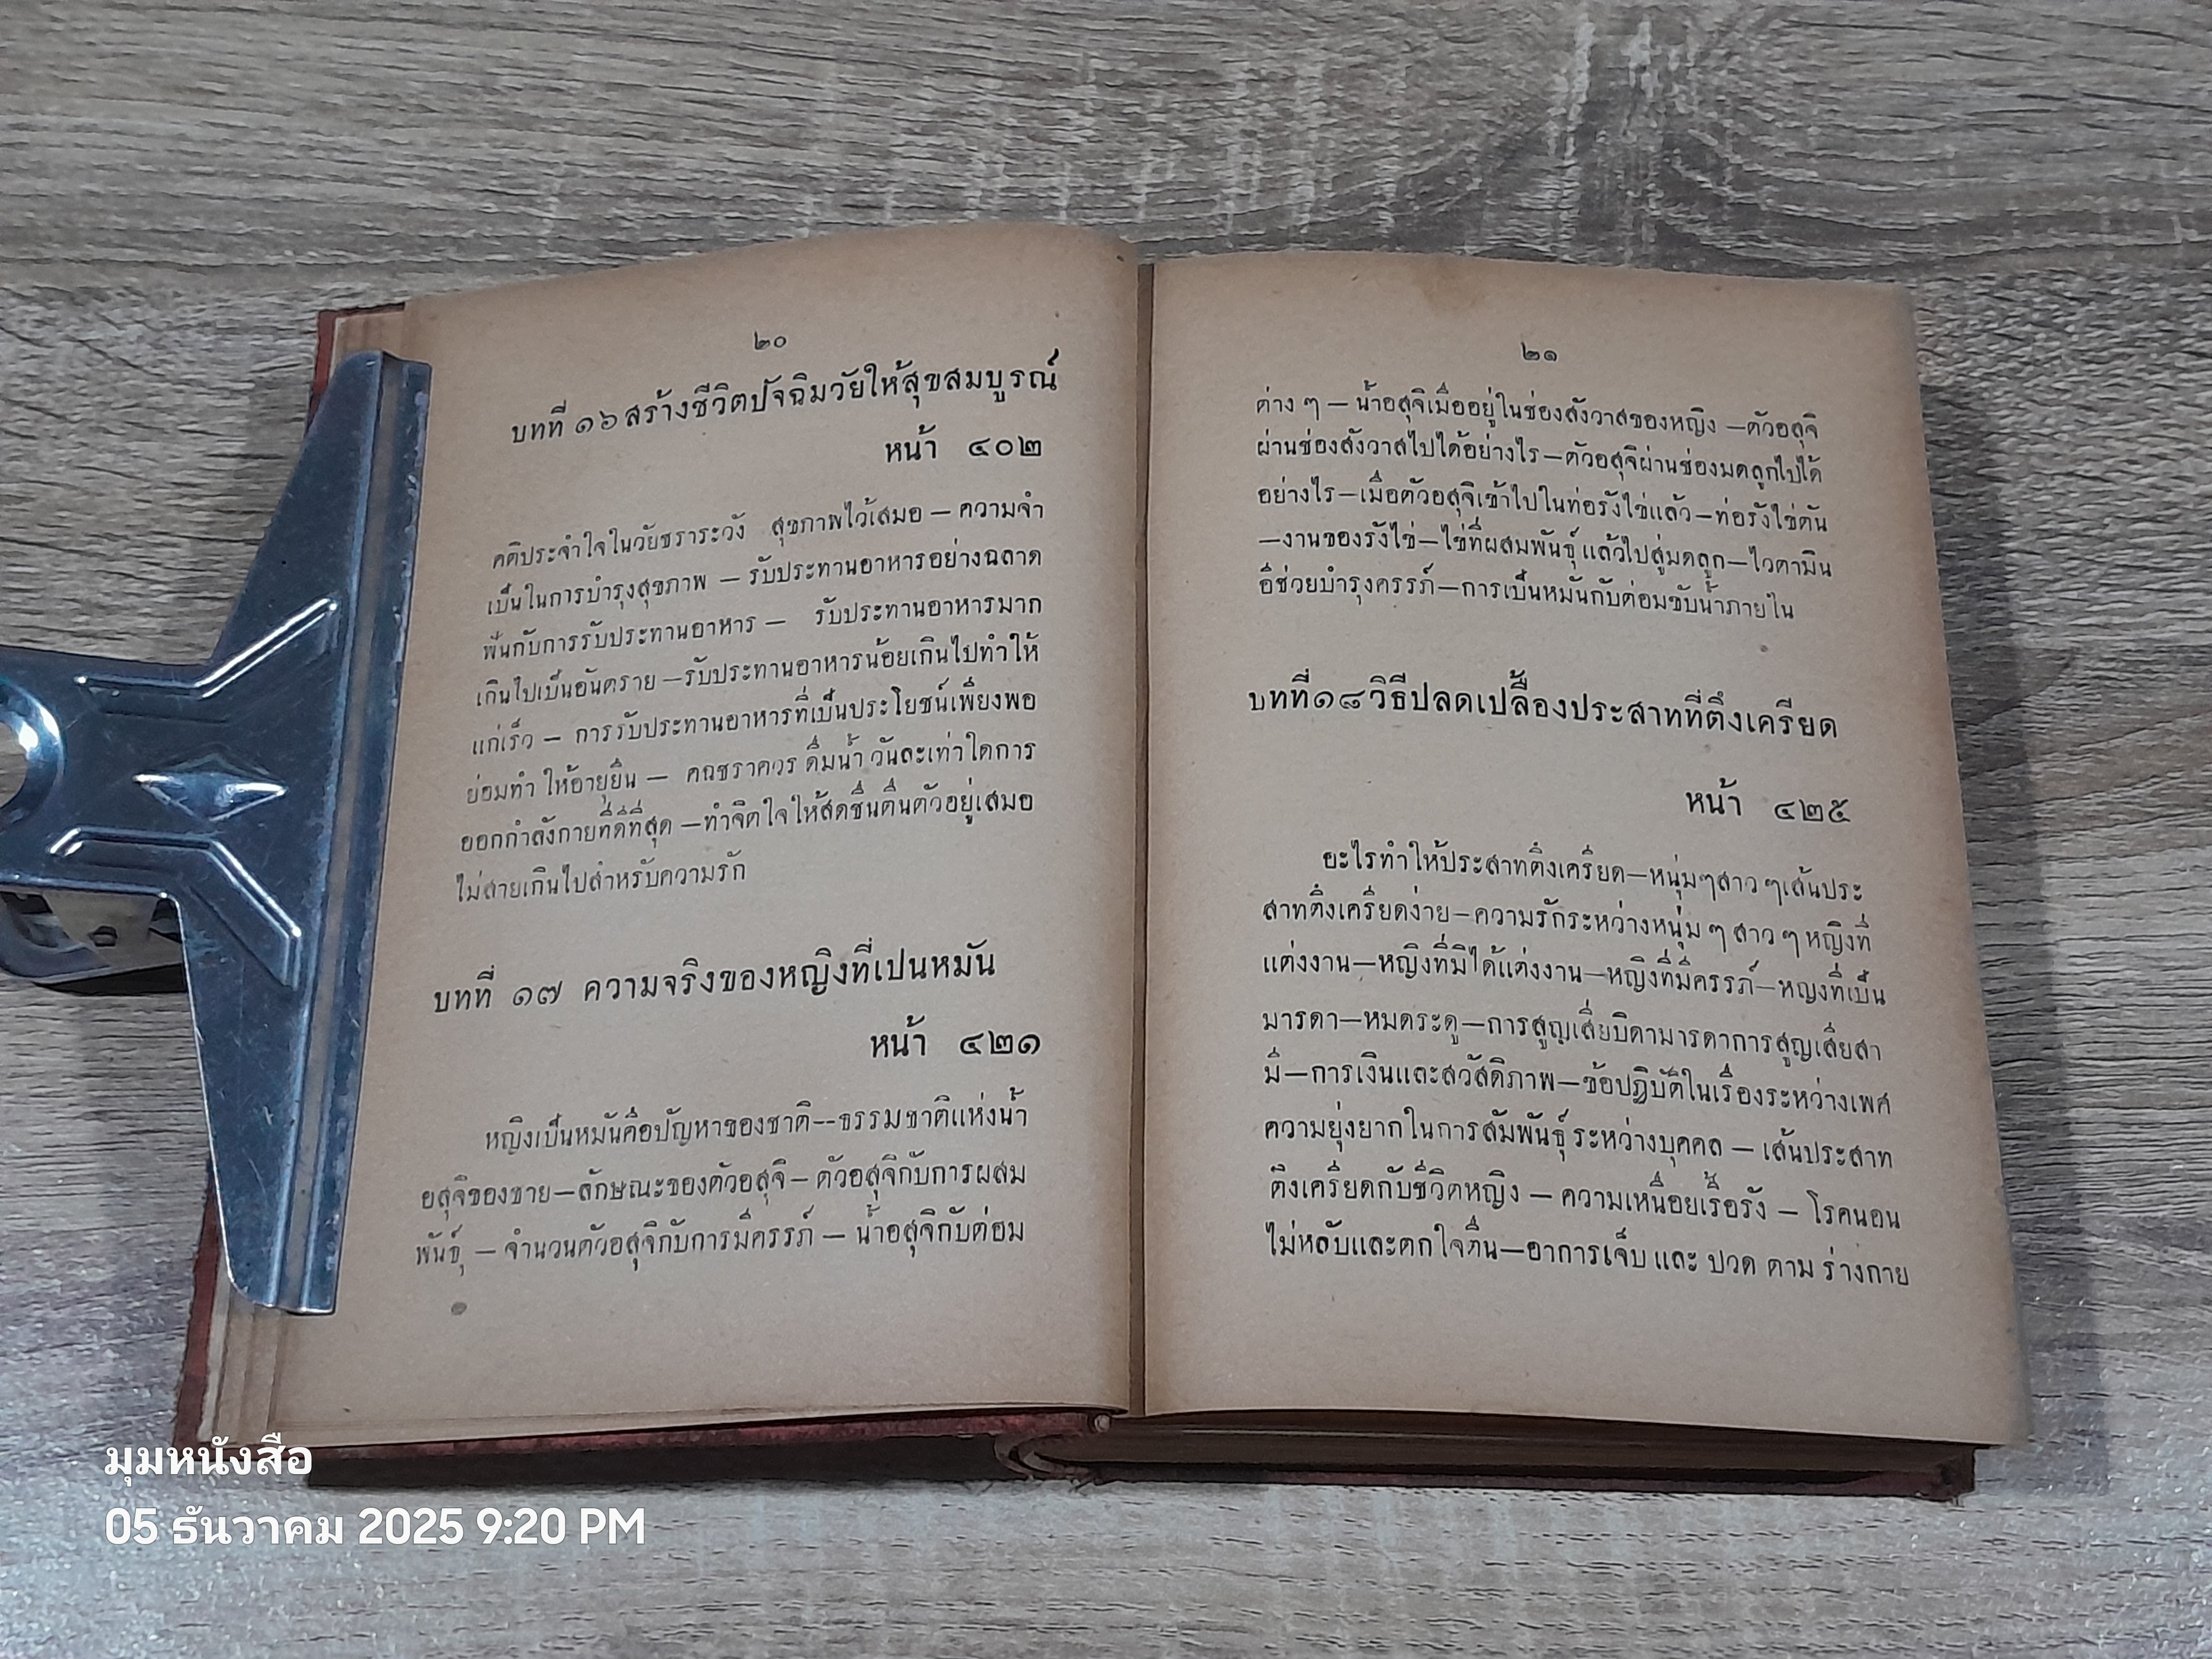 ๒๐
บทที่ ๑๖ สร้างชีวิตปัจฉิมวัยให้สุขสมบูรณ์
หน้า ๔๐๒
คติประจำใจในวัยชราระวัง สุขภาพไว้เสมอ — ความจำ
เป็นในการบำรุงสุขภาพ — รับประทานอาหารอย่างฉลาด
ฟันกับการรับประทานอาหาร — รับประทานอาหารมาก
เกินไปเป็นอันตราย —รับประทานอาหารน้อยเกินไปทำให้
แก่เร็ว — การรับประทานอาหารที่เป็นประโยชน์เพียงพอ
ย่อมทำ ให้อายุยืน — คนชราควร ดื่มน้ำ วันละเท่าใดการ
ออกกำลังกายที่ดีที่สุด —ทำจิตใจ ให้สดชื่นตื่นตัวอยู่เสมอ
ไม่สายเกินไปสำหรับความรัก
บทที่ ๑๗ ความจริงของหญิงที่เปนหมัน
หน้า ๔๒๑
หญิงเป็นหมันคือปัญหาของชาติ--ธรรมชาติแห่งน้ำ
อสุจิของชาย—ลักษณะของตัวอสุจิ— ตัวอสุจิกับการผสม
พันธุ์ — จำนวนตัวอสุจิกับการมีครรภ์ — น้ำอสุจิกับต่อม
๒๑
ต่าง ๆ — น้ำอสุจิเมื่ออยู่ในช่องสังวาสของหญิง —ตัวอสุจิ
ผ่านช่องสังวาสไปได้อย่างไร—ตัวอสุจิผ่านช่องมดลูกไปได้
อย่างไร—เมื่อตัวอสุจิเข้าไปในท่อรังไข่แล้ว—ท่อรังไข่ตัน
—งานของรังไข่—ไข่ที่ผสมพันธุ์แล้วไปสู่มดลูก—ไวตามิน
อีช่วยบำรุงครรภ์—การเป็นหมันกับต่อมขับน้ำภายใน
บทที่๑๘วิธีปลดเปลื้องประสาทที่ตึงเครียด
หน้า ๔๒๕
อะไรทำให้ประสาทตึงเครียด—หนุ่มๆสาว ๆเส้นประ
สาทตึงเครียดง่าย—ความรักระหว่างหนุ่ม ๆ สาว ๆ หญิงที่
แต่งงาน—หญิงที่มิได้แต่งงาน—หญิงที่มีครรภ์—หญงที่เป็น
มารดา—หมดระดู—การสูญเสียบิดามารดาการสูญเสียสา
มี—การเงินและสวัสดิภาพ—ข้อปฏิบัติในเรื่องระหว่างเพศ
ความยุ่งยากในการสัมพันธุ์ระหว่างบุคคล — เส้นประสาท
ตึงเครียดกับชีวิตหญิง — ความเหนื่อยเรื้อรัง — โรคนอน
ไม่หลับและตกใจตื่น—อาการเจ็บ และ ปวด ตาม ร่างกาย
มุมหนังสือ
05 ธันวาคม 2025 9:20 PM